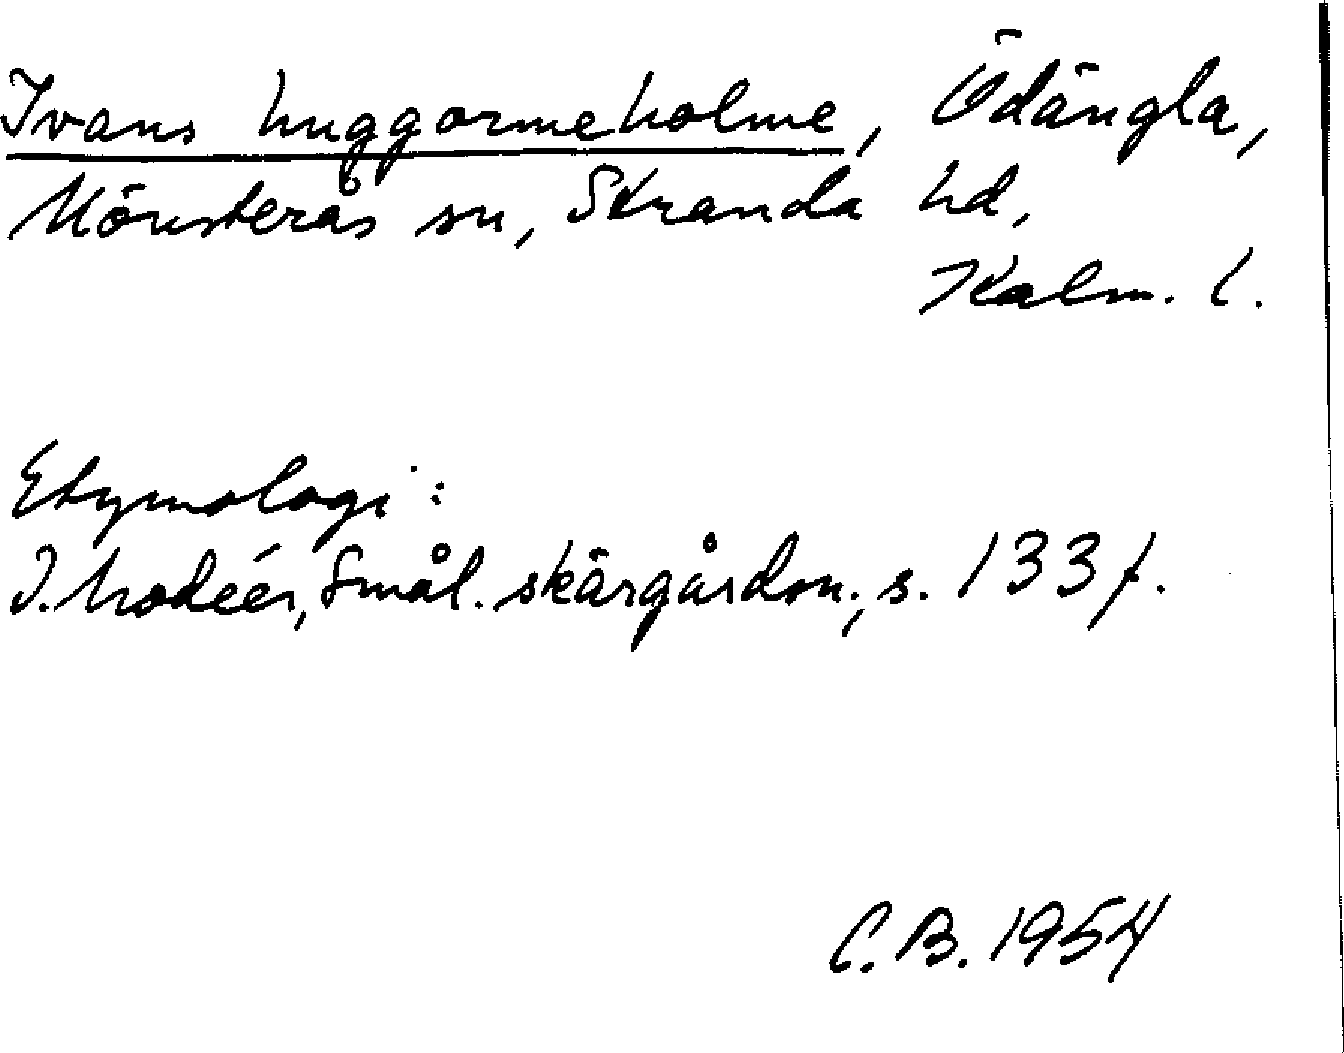 Ivans huggormeholme, Ödängla,
Mönsterås sn, Stranda hd,
Kalm. l.
Etymologi:
I. Modéer, Smål. skärgårdsn., s. 133 f.
C. B. 1954